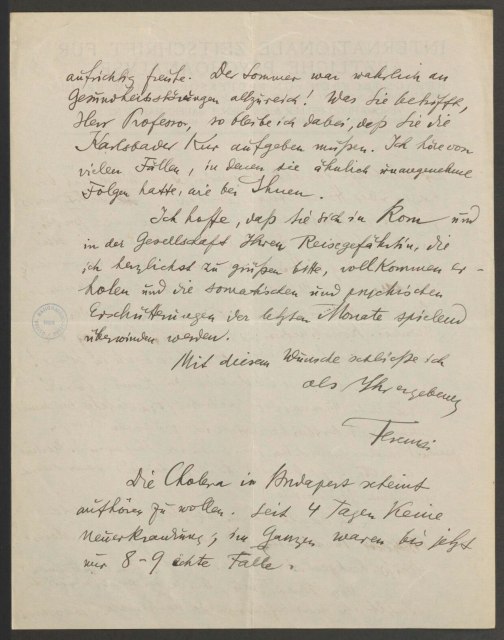 aufrichtig freute. Der Sommer war wahrlich an
Gesundheitsstörungen allzureich! Was Sie betrifft,
Herr Professor, so bleibe ich dabei, daß Sie die
Karlsbader Kur aufgeben müßen. Ich höre von
vielen Fällen, in denen sie ähnlich unangenehme
Folgen hatte, wie bei Ihnen.
Ich hoffe, daß Sie sich in Rom und
in der Gesellschaft Ihrer Reisegefährtin, die
ich herzlichst zu grüßen bitte, vollkommen er-
holen und die somatischen und psychischen
Erschütterungen der letzten Monate spielend
überwinden werden.
Mit diesem Wunsche schließe ich
als Ihr ergebener
Ferenczi
Die Cholera in Budapest scheint
aufhören zu wollen. Seit 4 Tagen keine
Neuerkrankung; im Ganzen waren bis jetzt
nur 8-9 echte Fälle.